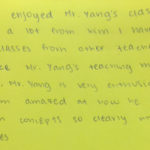 enjoyed Mr. Yang's clas
a lot from him I have
classes from other teache
ce Mr. Yang's teaching m
. Mr. Yang is very enthusia
m amazed at how he
n concepts so clearly
es